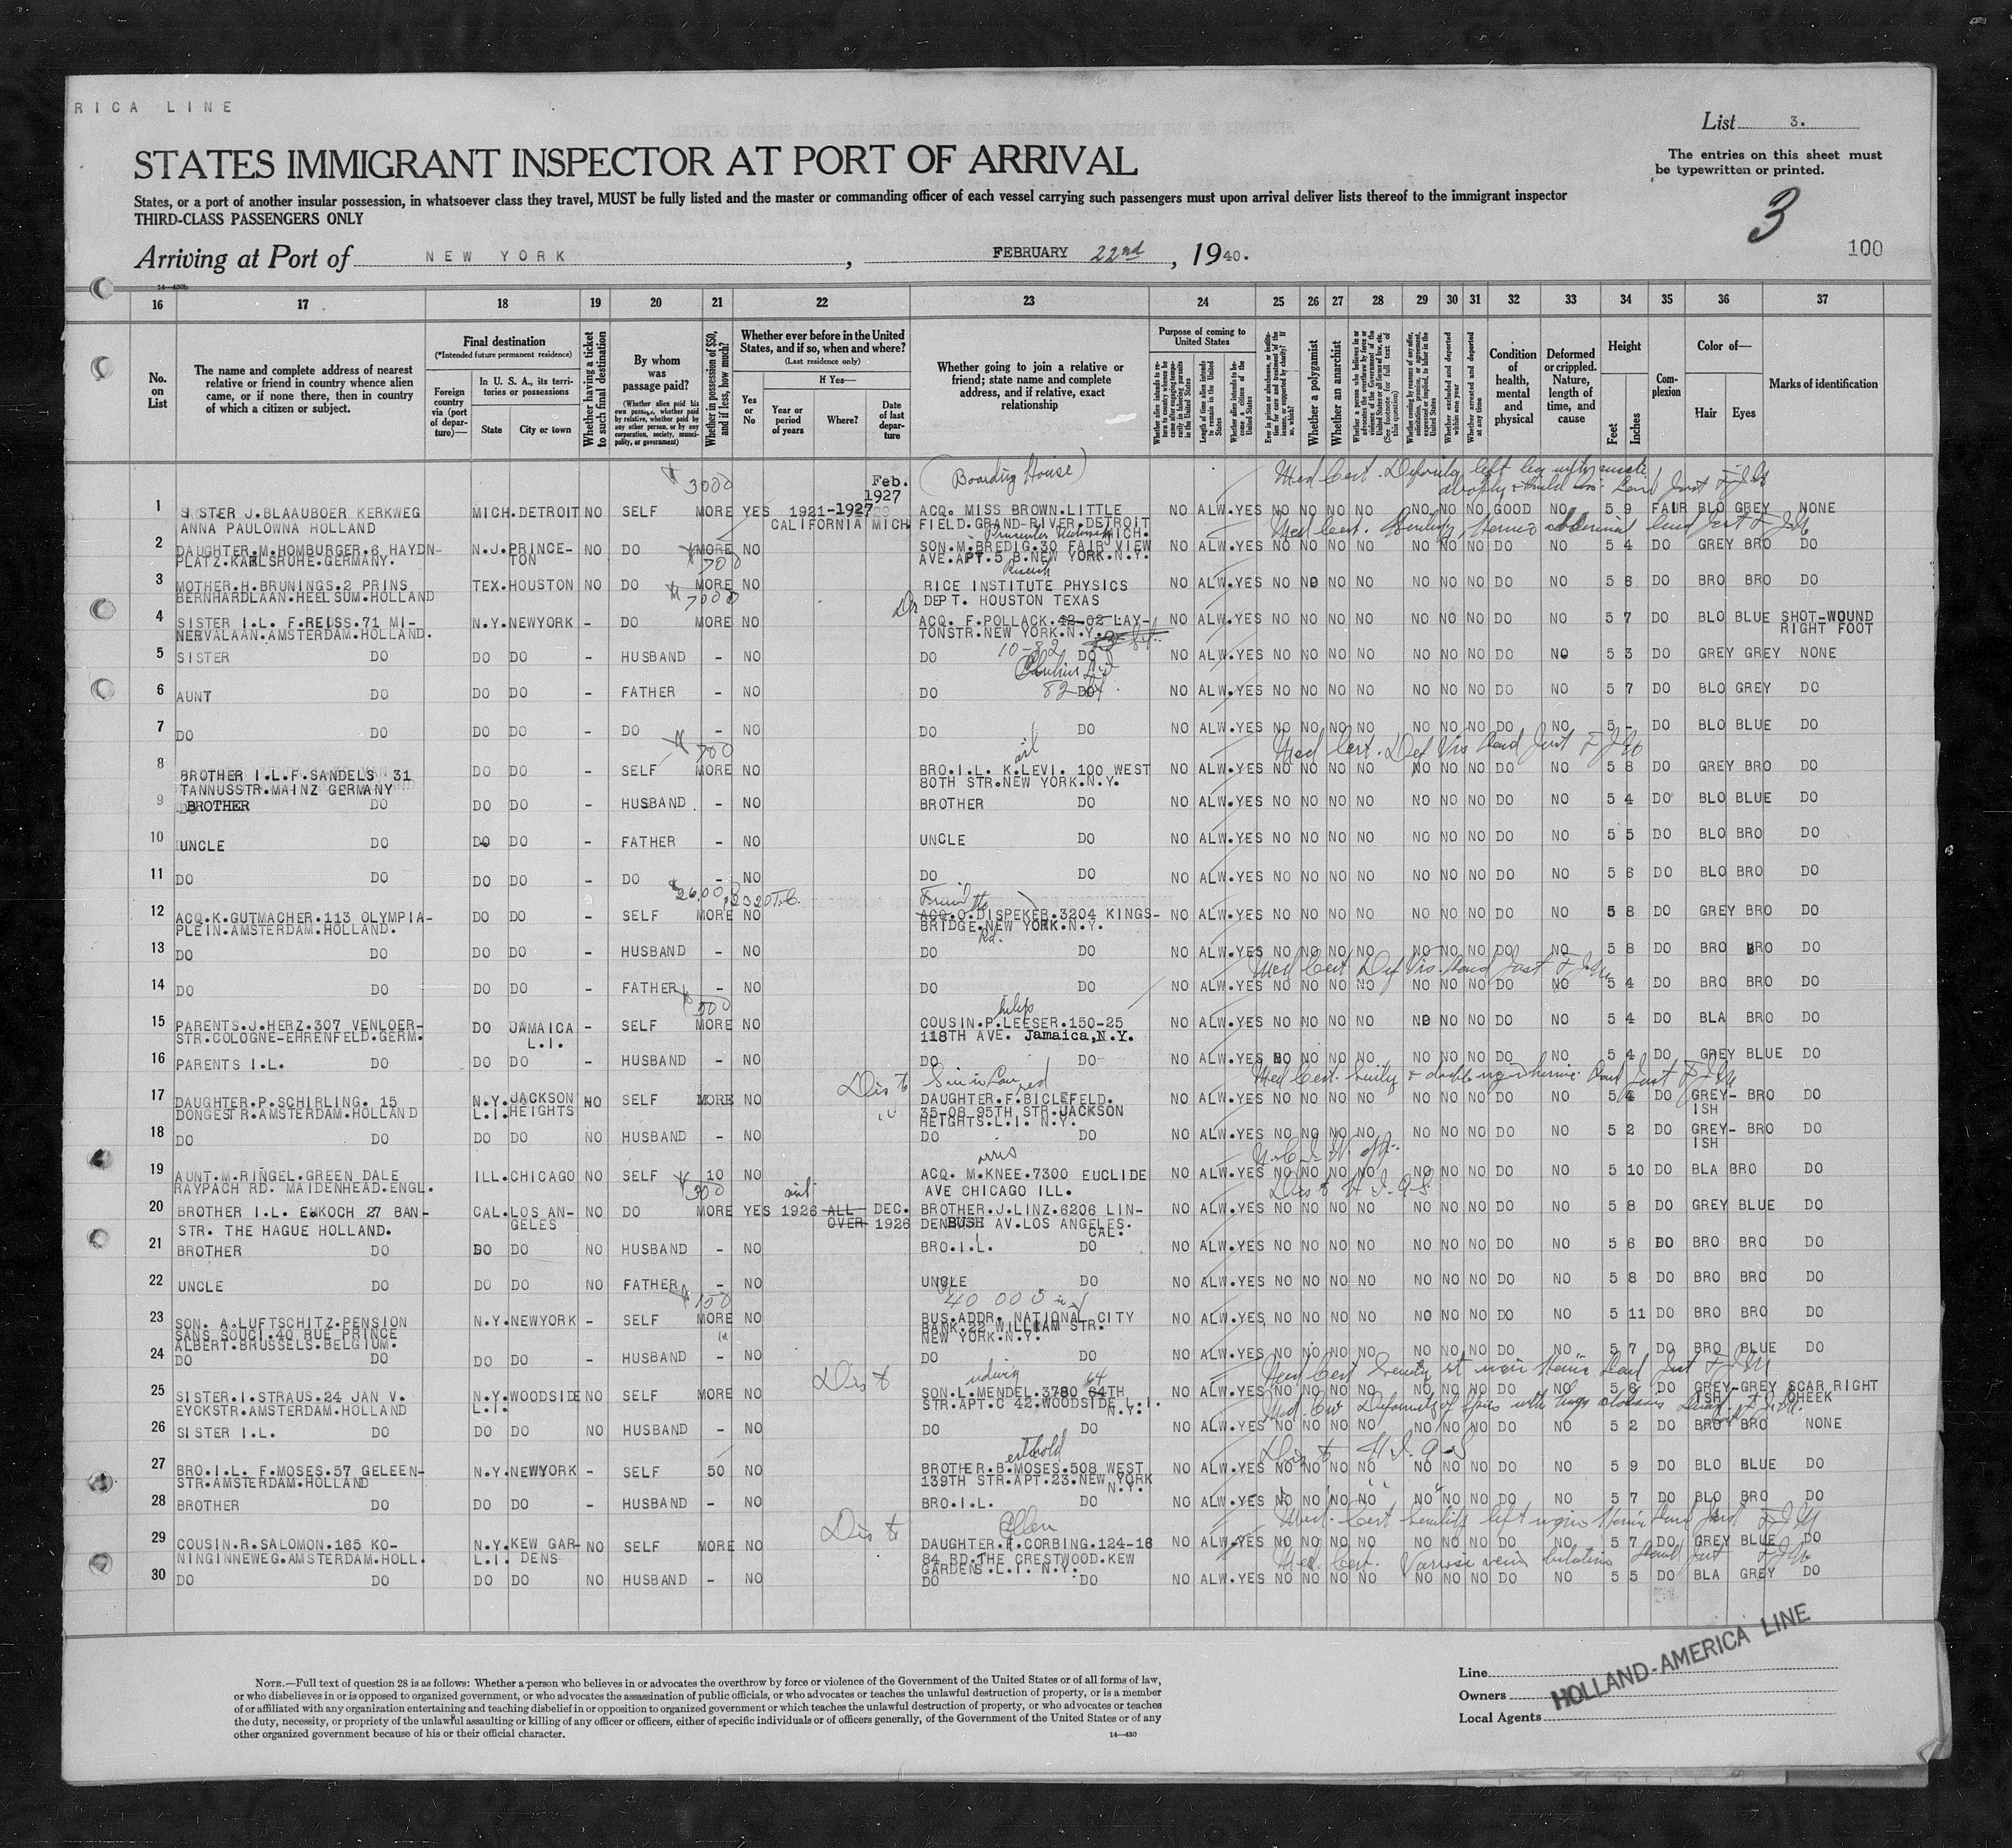 RICA LINE
List 3.
The entries on this sheet must
be typewritten or printed.
STATES IMMIGRANT INSPECTOR AT PORT OF ARRIVAL
States, or a port of another insular possession, in whatsoever class they travel, MUST be fully listed and the master or commanding officer of each vessel carrying such passengers must upon arrival deliver lists thereof to the immigrant inspector
THIRD-CLASS PASSENGERS ONLY
3
Arriving at Port of NEW YORK, FEBRUARY 22nd, 1940.
100
16 17 18 19 20 21 22 23 24 25 26 27 28 29 30 31 32 33 34 35 36 37
No. on List
The name and complete address of nearest relative or friend in country whence alien came, or if none there, then in country of which a citizen or subject.
Final destination
(*Intended future permanent residence)
Foreign country via (port of departure)—
In U. S. A., its territories or possessions
State
City or town
Whether having a ticket to such final destination
By whom was passage paid?
(Whether alien paid his own passage, whether paid by relative, whether paid by any other person, or by any corporation, society, municipality, or government)
Whether in possession of $50, and if less, how much?
Whether ever before in the United States, and if so, when and where?
(Last residence only)
Yes or No
If Yes—
Year or period of years
Where?
Date of last departure
Whether going to join a relative or friend; state name and complete address, and if relative, exact relationship
Purpose of coming to United States
Length of time alien intends to remain in the United States
Whether alien intends to become a citizen of the United States
Whether a polygamist
Whether an anarchist
Condition of health, mental and physical
Deformed or crippled. Nature, length of time, and cause
Height
Feet
Inches
Complexion
Color of—
Hair
Eyes
Marks of identification
3000 Feb. 1927 (Boarding House) Med Cert. Deformity left leg
1 SISTER J.BLAAUBOER KERKWEG MICH. DETROIT NO SELF MORE YES 1921-1927 ACQ. MISS BROWN.LITTLE NO ALW.YES NO NO NO NO NO NO NO GOOD NO 5 9 FAIR BLO GREY NONE
ANNA PAULOWNA HOLLAND CALIFORNIA MICH FIELD.GRAND-RIVER.DETROIT MICH.
2 DAUGHTER.M.HOMBURGER.6 HAYDN- N.J. PRINCE- NO DO MORE NO SON.M.BREDIG.30 FAIR VIEW NO ALW.YES NO NO NO NO NO NO NO DO NO 5 4 DO GREY BRO DO
PLATZ.KARLSRUHE.GERMANY. TON 700 AVE.APT.5 B.NEW YORK.N.Y.
3 MOTHER.H.BRUNINGS.2 PRINS TEX. HOUSTON NO DO MORE NO RICE INSTITUTE PHYSICS NO ALW.YES NO NO NO NO NO NO NO DO NO 5 6 DO BRO BRO DO
BERNHARDLAAN.HEELSUM.HOLLAND 7000 DEPT. HOUSTON TEXAS
4 SISTER I.L. F.REISS.71 MI- N.Y. NEWYORK - DO MORE NO Dr ACQ. F.POLLACK.42-02 LAY- NO ALW.YES NO NO NO NO NO NO NO DO NO 5 7 DO BLO BLUE SHOT-WOUND
NERVALAAN.AMSTERDAM.HOLLAND. TONSTR.NEW YORK.N.Y. RIGHT FOOT
5 SISTER DO DO DO - HUSBAND - NO DO 10-82 DO NO ALW.YES NO NO NO NO NO NO NO DO NO 5 3 DO GREY GREY NONE
6 AUNT DO DO DO - FATHER - NO DO 82 DO NO ALW.YES NO NO NO NO NO NO NO DO NO 5 7 DO BLO GREY DO
7 DO DO DO DO - DO - NO DO DO NO ALW.YES NO NO NO NO NO NO NO DO NO 5 - DO BLO BLUE DO
700 Med Cert. Def Vis
8 BROTHER I.L.F.SANDELS 31 DO DO - SELF MORE NO BRO.I.L. K.LEVI. 100 WEST NO ALW.YES NO NO NO NO NO NO NO DO NO 5 8 DO GREY BRO DO
TANNUSSTR.MAINZ GERMANY 80TH STR.NEW YORK.N.Y.
9 BROTHER DO DO DO - HUSBAND - NO BROTHER DO NO ALW.YES NO NO NO NO NO NO NO DO NO 5 4 DO BLO BLUE DO
10 UNCLE DO DO DO - FATHER - NO UNCLE DO NO ALW.YES NO NO NO NO NO NO NO DO NO 5 5 DO BLO BRO DO
11 DO DO DO DO - DO - NO DO DO NO ALW.YES NO NO NO NO NO NO NO DO NO 5 6 DO BLO BRO DO
Friend
12 ACQ.K.GUTMACHER.113 OLYMPIA- DO DO - SELF MORE NO ACQ.O.DISPEKER.3204 KINGS- NO ALW.YES NO NO NO NO NO NO NO DO NO 5 8 DO GREY BRO DO
PLEIN.AMSTERDAM.HOLLAND. BRIDGE.NEW YORK.N.Y.
Rd.
13 DO DO DO DO - HUSBAND - NO DO DO NO ALW.YES NO NO NO NO NO NO NO DO NO 5 8 DO BRO BRO DO
Med Cert Def Vis.
14 DO DO DO DO - FATHER - NO DO DO NO ALW.YES NO NO NO NO NO NO NO DO NO 5 4 DO BRO BRO DO
500
15 PARENTS.J.HERZ.307 VENLOER- DO JAMAICA - SELF MORE NO COUSIN.P.LEESER.150-25 NO ALW.YES NO NO NO NO NO NO NO DO NO 5 4 DO BLA BRO DO
STR.COLOGNE-EHRENFELD.GERM. L.I. 118TH AVE. Jamaica,N.Y.
16 PARENTS I.L. DO DO DO - HUSBAND - NO DO DO NO ALW.YES NO NO NO NO NO NO NO DO NO 5 4 DO GREY BLUE DO
Son in Law Med Cert.
17 DAUGHTER.P.SCHIRLING. 15 N.Y. JACKSON NO SELF MORE NO DAUGHTER.F.BICLEFELD. NO ALW.YES NO NO NO NO NO NO NO DO NO 5 4 DO GREY- BRO DO
DONGESTR.AMSTERDAM.HOLLAND L.I. HEIGHTS 35-08 95TH STR.JACKSON ISH
HEIGHTS.L.I. N.Y.
18 DO DO DO DO NO HUSBAND - NO DO DO NO ALW.YES NO NO NO NO NO NO NO DO NO 5 2 DO GREY- BRO DO
ISH
orris
19 AUNT.M.RINGEL.GREEN DALE ILL. CHICAGO NO SELF 10 NO ACQ. M.KNEE.7300 EUCLIDE NO ALW.YES NO NO NO NO NO NO NO DO NO 5 10 DO BLA BRO DO
RAYPACH RD. MAIDENHEAD.ENGL. 300 AVE CHICAGO ILL.
20 BROTHER I.L. EMKOCH 27 BAN- CAL. LOS AN- NO DO MORE YES 1926 ALL DEC. BROTHER.J.LINZ.6206 LIN- NO ALW.YES NO NO NO NO NO NO NO DO NO 5 8 DO GREY BLUE DO
STR. THE HAGUE HOLLAND. GELES OVER 1926 DENBUSH AV.LOS ANGELES.
CAL.
21 BROTHER DO DO DO NO HUSBAND - NO BRO.I.L. DO NO ALW.YES NO NO NO NO NO NO NO DO NO 5 6 DO BRO BRO DO
22 UNCLE DO DO DO NO FATHER - NO UNCLE DO NO ALW.YES NO NO NO NO NO NO NO DO NO 5 8 DO BRO BRO DO
150 40 000
23 SON. A.LUFTSCHITZ.PENSION N.Y. NEWYORK - SELF MORE NO BUS.ADDR. NATIONAL CITY NO ALW.YES NO NO NO NO NO NO NO DO NO 5 11 DO BRO BRO DO
SANS SOUCI.40 RUE PRINCE BANK.22 WILLIAM STR.
ALBERT.BRUSSELS.BELGIUM. NEW YORK.N.Y.
24 DO DO DO DO - HUSBAND - NO DO DO NO ALW.YES NO NO NO NO NO NO NO DO NO 5 7 DO BRO BLUE DO
udwig 64
25 SISTER.I.STRAUS.24 JAN V. N.Y. WOODSIDE NO SELF MORE NO SON.L.MENDEL.3780 64TH NO ALW.YES NO NO NO NO NO NO NO DO NO 5 6 DO GREY- GREY SCAR RIGHT
EYCKSTR.AMSTERDAM.HOLLAND L.I. STR.APT.C 42.WOODSIDE L.I. ISH CHEEK
N.Y.
26 SISTER I.L. DO DO DO NO HUSBAND - NO DO DO NO ALW.YES NO NO NO NO NO NO NO DO NO 5 2 DO BRO BRO NONE
erthold
27 BRO.I.L. F.MOSES.57 GELEEN- N.Y. NEWYORK - SELF 50 NO BROTHER.B.MOSES.508 WEST NO ALW.YES NO NO NO NO NO NO NO DO NO 5 9 DO BLO BLUE DO
STR.AMSTERDAM.HOLLAND 139TH STR.APT.23.NEW YORK
N.Y.
28 BROTHER DO DO DO - HUSBAND - NO BRO.I.L. DO NO ALW.YES NO NO NO NO NO NO NO DO NO 5 7 DO BLO BRO DO
Ellen
29 COUSIN.R.SALOMON.165 KO- N.Y. KEW GAR- NO SELF MORE NO DAUGHTER.E.CORBING.124-16 NO ALW.YES NO NO NO NO NO NO NO DO NO 5 7 DO GREY BLUE DO
NINGINNEWEG.AMSTERDAM.HOLL. L.I. DENS 84 RD.THE CRESTWOOD.KEW
GARDENS.L.I. N.Y. Med Cert.
30 DO DO DO DO NO HUSBAND - NO DO DO NO ALW.YES NO NO NO NO NO NO NO DO NO 5 5 DO BLA GREY DO
NOTE.—Full text of question 28 is as follows: Whether a person who believes in or advocates the overthrow by force or violence of the Government of the United States or of all forms of law,
or who disbelieves in or is opposed to organized government, or who advocates the assassination of public officials, or who advocates or teaches the unlawful destruction of property, or is a member
of or affiliated with any organization entertaining and teaching disbelief in or opposition to organized government or which teaches the unlawful destruction of property, or who advocates or teaches
the duty, necessity, or propriety of the unlawful assaulting or killing of any officer or officers, either of specific individuals or of officers generally, of the Government of the United States or of any
other organized government because of his or their official character.
14—430
Line
Owners
Local Agents
HOLLAND-AMERICA LINE